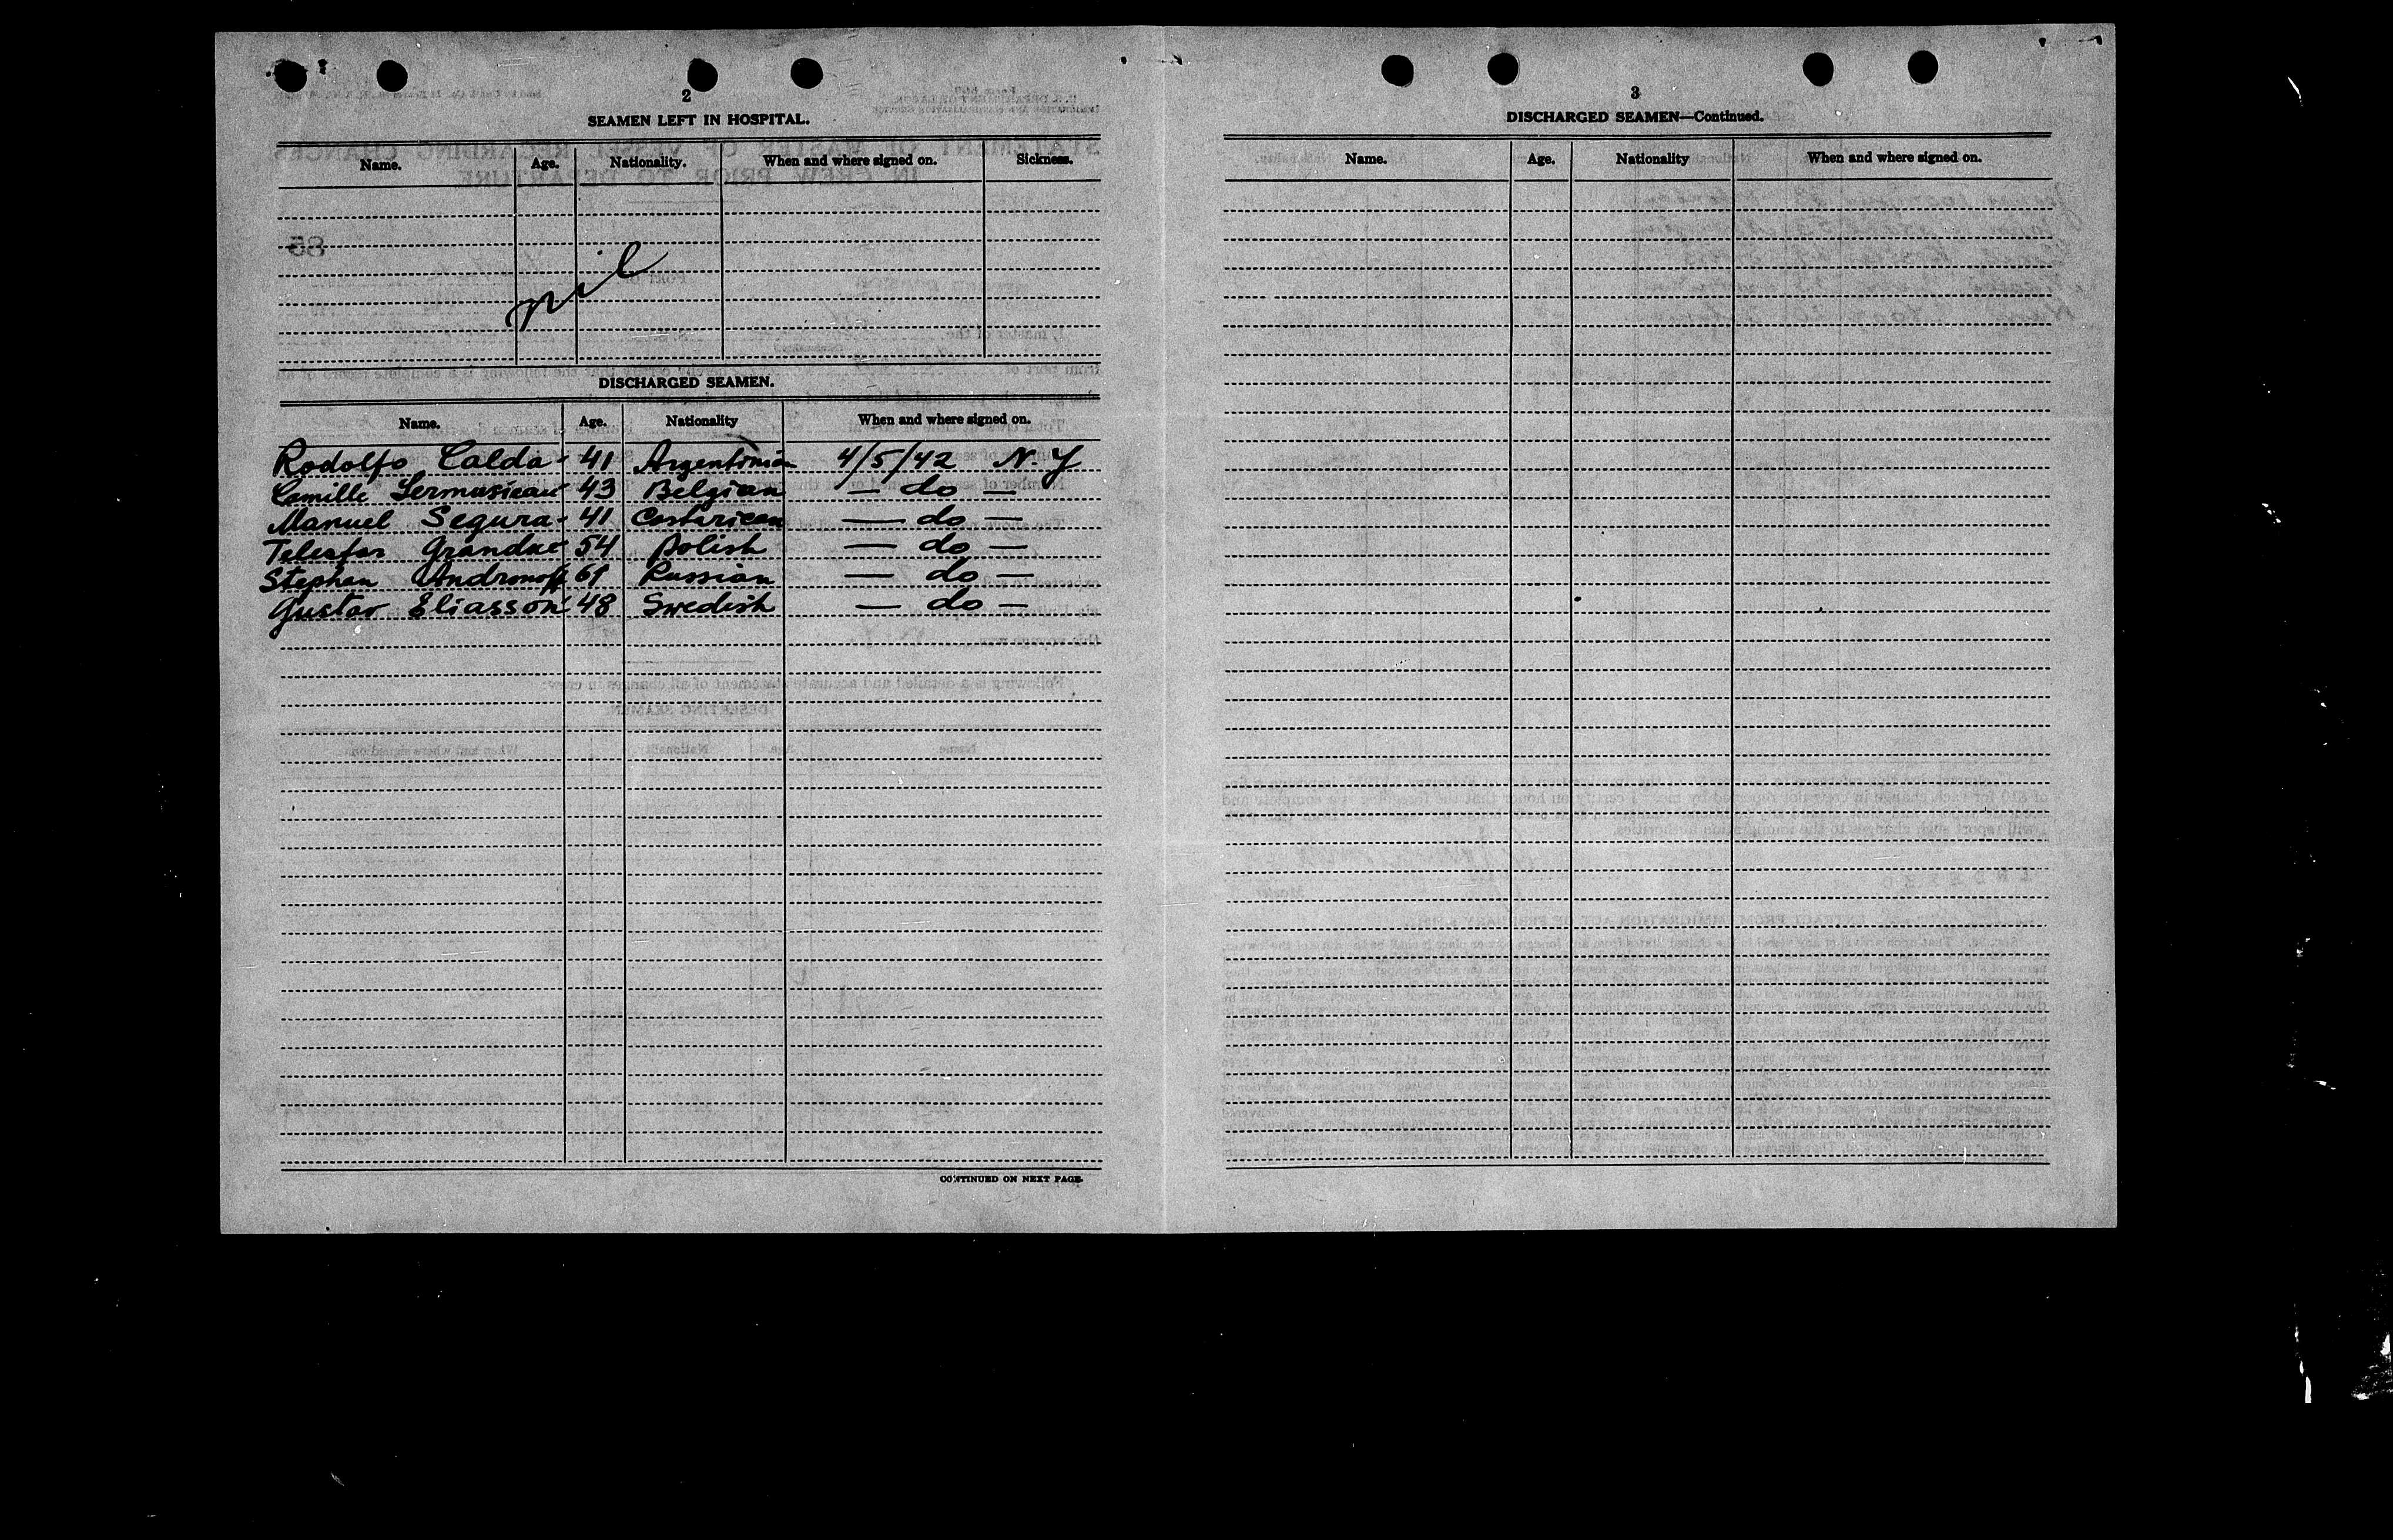 2
SEAMEN LEFT IN HOSPITAL.
Name. Age. Nationality. When and where signed on. Sickness.
nil
DISCHARGED SEAMEN.
Name. Age. Nationality When and where signed on.
Rodolfo Calda - 41 Argentinian 4/5/42 N.Y
Camille 43 Belgian — do —
Manuel Segura - 41 Costarican — do —
Telesfor 54 Polish — do —
Stephan Andronoff 61 Russian — do —
Gustav Eliasson 48 Swedish — do —
CONTINUED ON NEXT PAGE.
3
DISCHARGED SEAMEN—Continued.
Name. Age. Nationality When and where signed on.